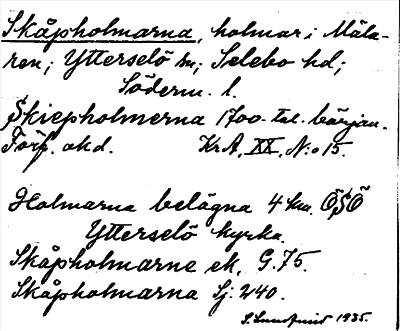 Skåpholmarna, holmar i Mäla-
ren; Ytterselö sn; Selebo hd;
Söderm. l.
Skiepholmerna 1700-tal. början.
Förf. okd. KrA, XX, N:o 15.
Holmarna belägna 4 km. ÖSÖ
Ytterselö kyrka.
Skåpholmarne ek. G. 75.
Skåpholmarna Sj. 240.
S. Lundqvist 1935.